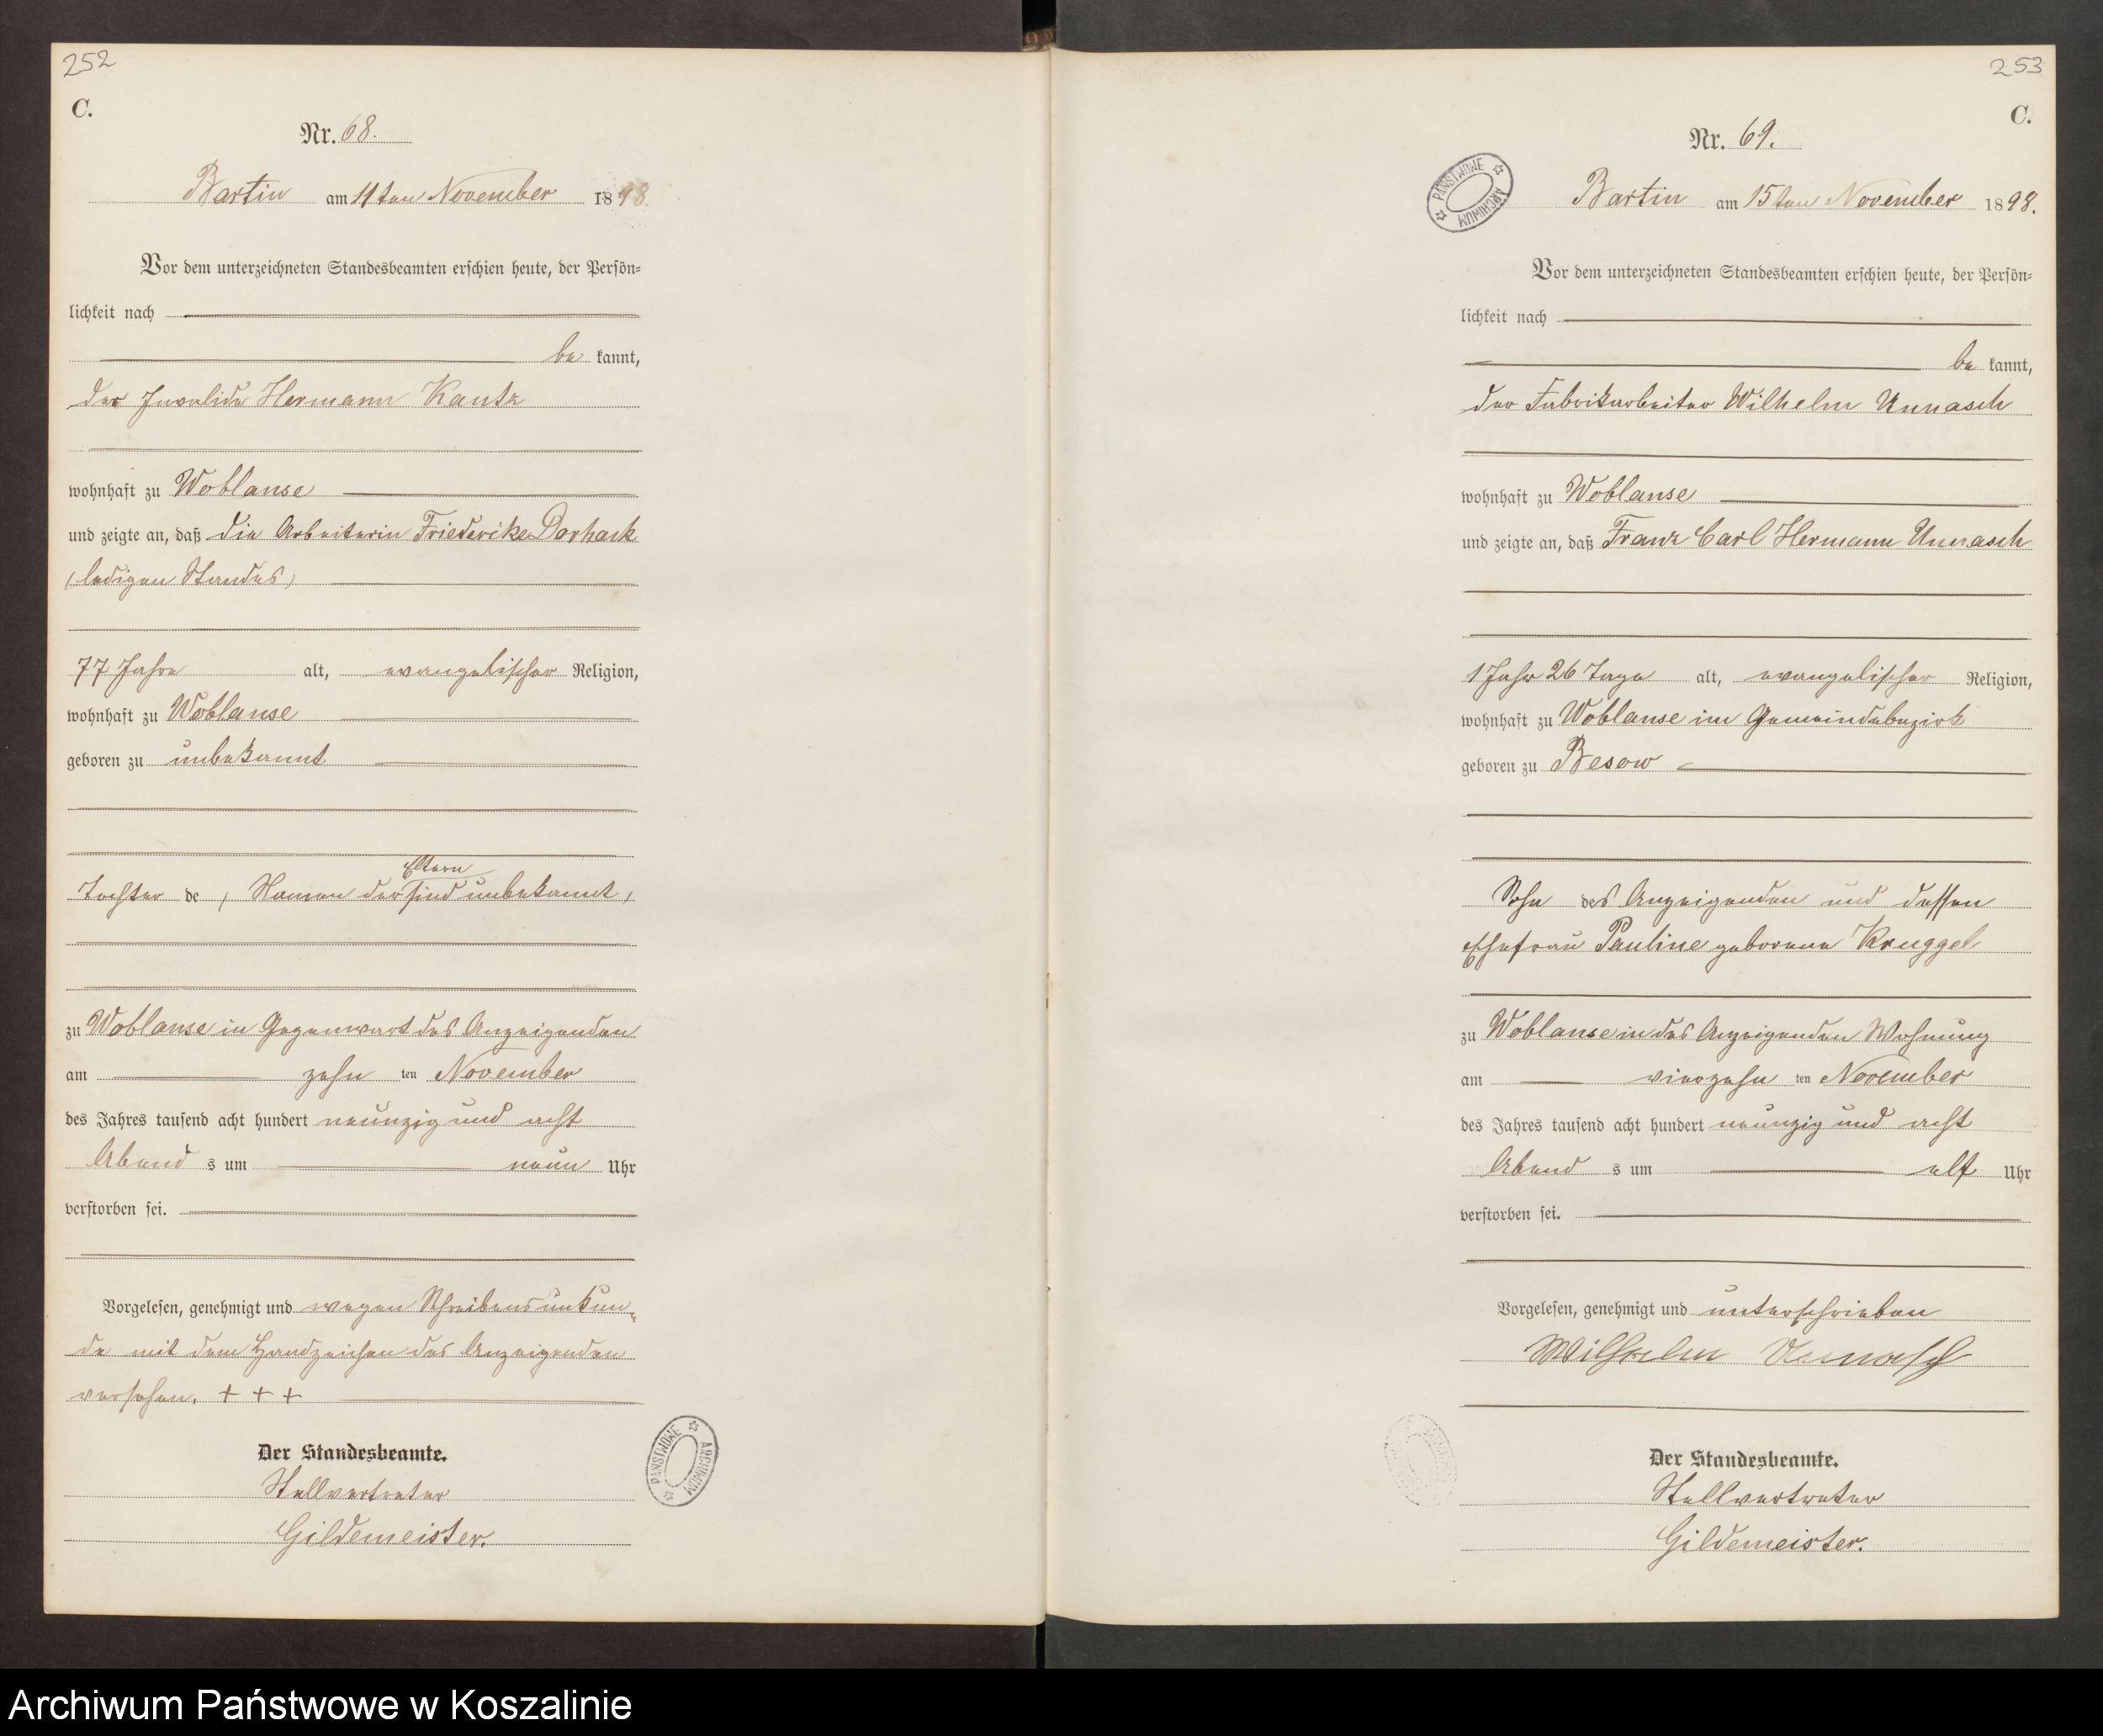 252
C.
Nr. 68.
Bartin am 11ten November 1898.
Vor dem unterzeichneten Standesbeamten erschien heute, der Persön-
lichkeit nach
be kannt,
der Invalide Hermann Kautz
wohnhaft zu Woblanse
und zeigte an, daß die Arbeiterin Friederike Dorhack
(ledigen Standes)
77 Jahre alt, evangelischer Religion,
wohnhaft zu Woblanse
geboren zu unbekannt
Eltern
Tochter de (Namen der sind unbekannt)
zu Woblanse in Gegenwart des Anzeigenden
am zehn ten November
des Jahres tausend acht hundert neunzig und acht
Abend s um neun Uhr
verstorben sei.
Vorgelesen, genehmigt und wegen Schreibensunkun-
de mit dem Handzeichen des Anzeigenden
versehen. + + +
Der Standesbeamte.
Stellvertreter
Gildemeister.
PAŃSTWOWE ARCHIWUM
253
C.
Nr. 69.
PAŃSTWOWE ARCHIWUM
Bartin am 15ten November 1898.
Vor dem unterzeichneten Standesbeamten erschien heute, der Persön-
lichkeit nach
be kannt,
der Fabrikarbeiter Wilhelm Unnasch
wohnhaft zu Woblanse
und zeigte an, daß Franz Carl Hermann Unnasch
1 Jahr 26 Tage alt, evangelischer Religion,
wohnhaft zu Woblanse im Gemeindebezirk
geboren zu Besow
Sohn des Anzeigenden und dessen
Ehefrau Pauline geborene Kruggel
zu Woblanse in des Anzeigenden Wohnung
am vierzehn ten November
des Jahres tausend acht hundert neunzig und acht
Abend s um elf Uhr
verstorben sei.
Vorgelesen, genehmigt und unterschrieben
Wilhelm Unnasch
Der Standesbeamte.
Stellvertreter
Gildemeister.
Archiwum Państwowe w Koszalinie